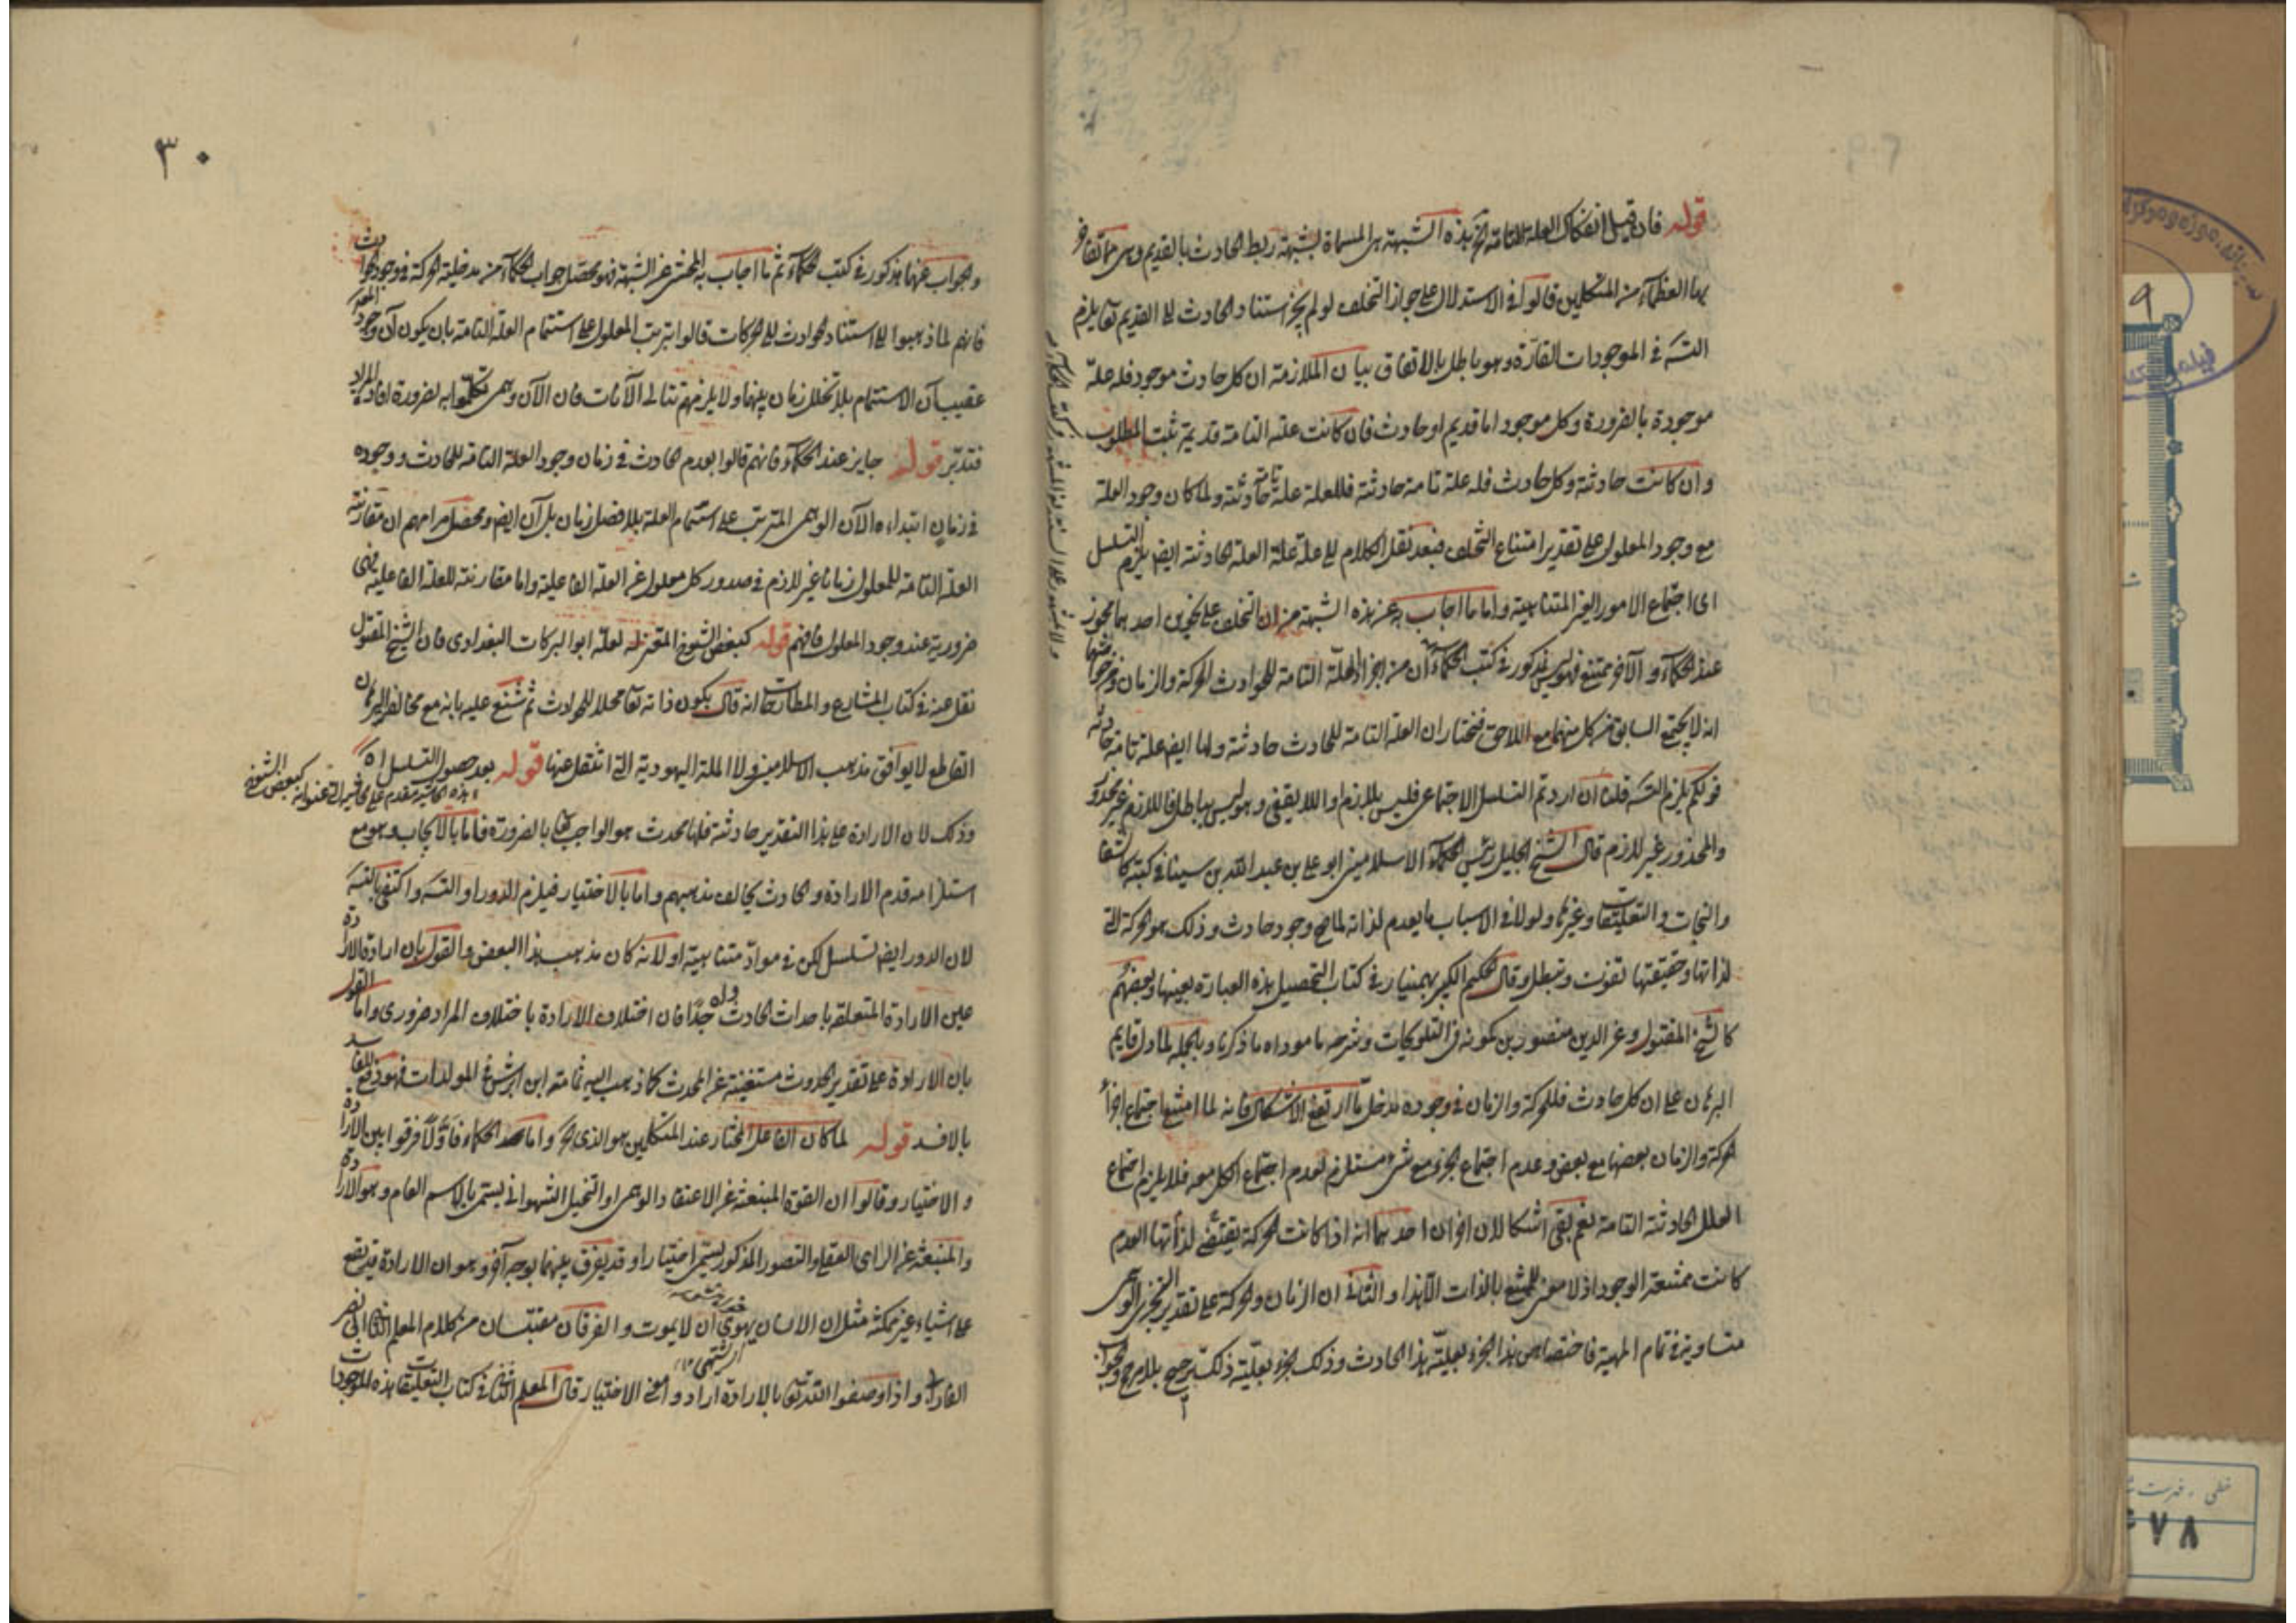 قوله فان قيل انفكاك العلة التامة الخ هذه الشبهة هى المسماة بشبهة ربط الحادث بالقديم وهى مما تفاخر
بها العظمآء من المتكلمين قالوا فى الاستدلال على جواز التخلف لو لم يجز استناد الحادث الى القديم تعا يلزم
التسـ فى الموجودات القارّة وهو باطل بالاتفاق بيان الملازمة ان كل حادث موجود فله علة
موجودة بالضرورة وكل موجود اما قديم او حادث فان كانت علته التامة قديمة ثبت المطلوب
وان كانت حادثة وكل حادث فله علة تامة حادثة فللعلة علة تامة حادثة ولما كان وجود العلة
مع وجود المعلول على تقدير امتناع التخلف فبعد نقل الكلام الى علة علة العلة الحادثة ايضا يلزم التسلسل
اى اجتماع الامور الغير المتناهية واما ما اجاب به عن هذه الشبهة من ان التخلف على نحوين احدهما مجوز
عند الحكمآء والآخر ممتنع فهو ليس بمذكور فى كتب الحكمآء ان من اجزاء العلة التامة للحوادث الحركة والزمان ومن خواصهما
انه لا يجتمع السابق من كل منهما مع اللاحق فنختار ان العلة التامة للحادث حادثة ولها ايض علة تامة حادثة
قولكم يلزم التسـ قلنا ان اردتم التسلسل الاجتماعى فليس بلازم او اللايقفى وهو ليس بباطل فاللازم غير محذور
والمحذور غير لازم قال الشيخ الجليل رئيس الحكمآء الاسلاميين ابو على بن عبد الله بن سينا فى كتبه كالشفا
والنجات والتعليقات وغيرها ولولا فى الاسباب ما يعدم لذاته لما صح وجود حادث وذلك هو الحركة التى
لذاتها وحقيقتها تفوت وتبطل وقال الحكيم الكبير بهمنيار فى كتاب التحصيل هذه العبارة بعينها وبعضهم
كالشيخ المقتول وعز الدين منصور بن كمونه فى التلويحات وشرحه ما موداه ما ذكرنا وبالجملة لما دل قايم
البرهان على ان كل حادث فللحركة والزمان فى وجوده مدخل ما ارتفع الاشكال فانه لما امتنع اجتماع اجزآء
الحركة والزمان بعضها مع بعض وعدم اجتماع الجزء مع شئ مستلزم لعدم اجتماع الكل معه فلا يلزم اجتماع
العلل الحادثة التامة نعم بقى اشكالان اخران احدهما انه اذا كانت الحركة يقتضى لذاتها العدم
كانت ممتنعة الوجود اذ لا معنى للممتنع بالذات الا هذا والثانى ان الزمان والحركة على تقدير التجزى الوهمى
متساوية فى تمام المهية فاختصاص هذا الجزء بعلية هذا الحادث وذلك الجزء بعلية ذلك ترجيح بلا مرجح والجواب
٣٠
والجواب عنهما مذكور فى كتب الحكمآء ثم ما اجاب به المحشى عن الشبهة فهو محصل جواب الحكمآء من مدخلية الحركة فى وجود الحوادث
فانهم لما ذهبوا الى استناد الحوادث الى الحركات قالوا بترتب المعلول على استتمام العلة التامة بان يكون آن وجود المعلول
عقيب آن الاستتمام بلا تخلل زمان بينهما ولا يلزمهم تتالى الآنات فان الآن وهمى تكلموا به لضرورة افادة المراد
فتدبّر قوله جايز عند الحكمآء فانهم قالوا بعدم الحادث فى زمان وجود العلة التامة للحادث ووجوده
فى زمان ابتداءه الآن الوهمى المترتب على استتمام العلة بلا فصل زمان بل آن ايض ومحصل مرامهم ان مقارنة
العلة التامة للمعلول زمانا غير لازم فى صدور كل معلول عن العلة الفاعلية واما مقارنته للعلة الفاعلية فهى
ضرورية عند وجود المعلول فافهم قوله كبعض الشيوخ المعتزله لعله ابو البركات البغدادى فان الشيخ المقتول
نقل عنه فى كتاب المشارع والمطارحات انه قال بكون ذاته تعا محلا للحوادث ثم شنع عليه بانه مع مخالفة البرهان
القاطع لا يوافق مذهب الاسلاميين ولا الملة اليهودية التى انتقل عنها قوله بعد حصول التسلسل اه
هذه الحاشية مقدم على الحاشية التى عنوانه كبعض الشيوخ
وذلك لان الارادة على هذا التقدير حادثة فلها محدث هو الواجب تعا بالضرورة فاما بالايجاب وهو مع
استلزامه قدم الارادة والحادث يخالف مذهبهم واما بالاختيار فيلزم الدور او التسـ واكتفى بالتسـ
لان الدور ايض تسلسل لكن فى موادّ متناهية او لانه كان مذهب هذا البعض والقول بان ارادة الارادة
عين الارادة المتعلقه باحداث الحادث واه جدًا فان اختلاف الارادة باختلاف المراد ضرورى واما القول
بان الارادة على تقدير الحدوث مستغنية عن المحدث كما ذهب اليه ثمامة ابن اشرس فى المولدات فهو دفع الفاسد
بالافسد قوله لما كان الفاعل المختار عند المتكلمين هو الذى الخ واما عند الحكماء فاوّلاً فرقوا بين الارادة
والاختيار وقالوا ان القوة المنبعثة عن الاعتقاد الوهمى او التخيل الشهوانى يسمى بالاسم العام وهو الارادة
والمنبعثة عن الراى العقلى والتصور المذكور يسمى اختيارا وقد يفرق بينهما بوجه آخر وهو ان الارادة قد يقع
على اشياء غير ممكنة مثل ان الانسان يهوى ان لا يموت والفرقان مقتبسان من كلام المعلم الثانى ابى نصر
الفارابى واذا وصفوا الله تعا بالارادة ارادوا معنى الاختيار قال المعلم الثانى فى كتاب التعليقات هذه الموجودات